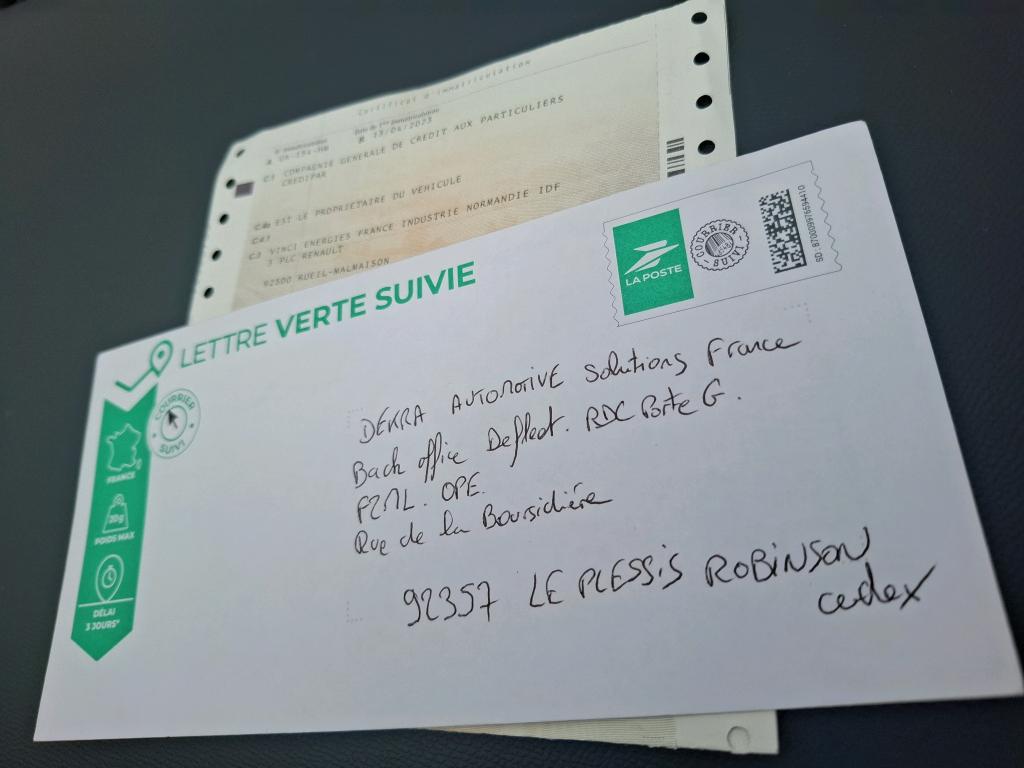 Certificat d'immatriculation
B 13/04/2023
C1 COMPAGNIE GENERALE DE CREDIT AUX PARTICULIERS
CREDIPAR
C4a EST LE PROPRIETAIRE DU VEHICULE
C41
C3 VINCI ENERGIES FRANCE INDUSTRIE NORMANDIE IDF
3 PLC RENAULT
92500 RUEIL-MALMAISON
LETTRE VERTE SUIVIE
LA POSTE
COURRIER SUIVI
COURRIER SUIVI
FRANCE
20g
POIDS MAX
DÉLAI
3 JOURS*
DEKRA AUTOMOTIVE Solutions France
Back office Defleet. RDC Porte G.
PZML. OPE.
Rue de la Boursidière
92357 LE PLESSIS ROBINSON
cedex